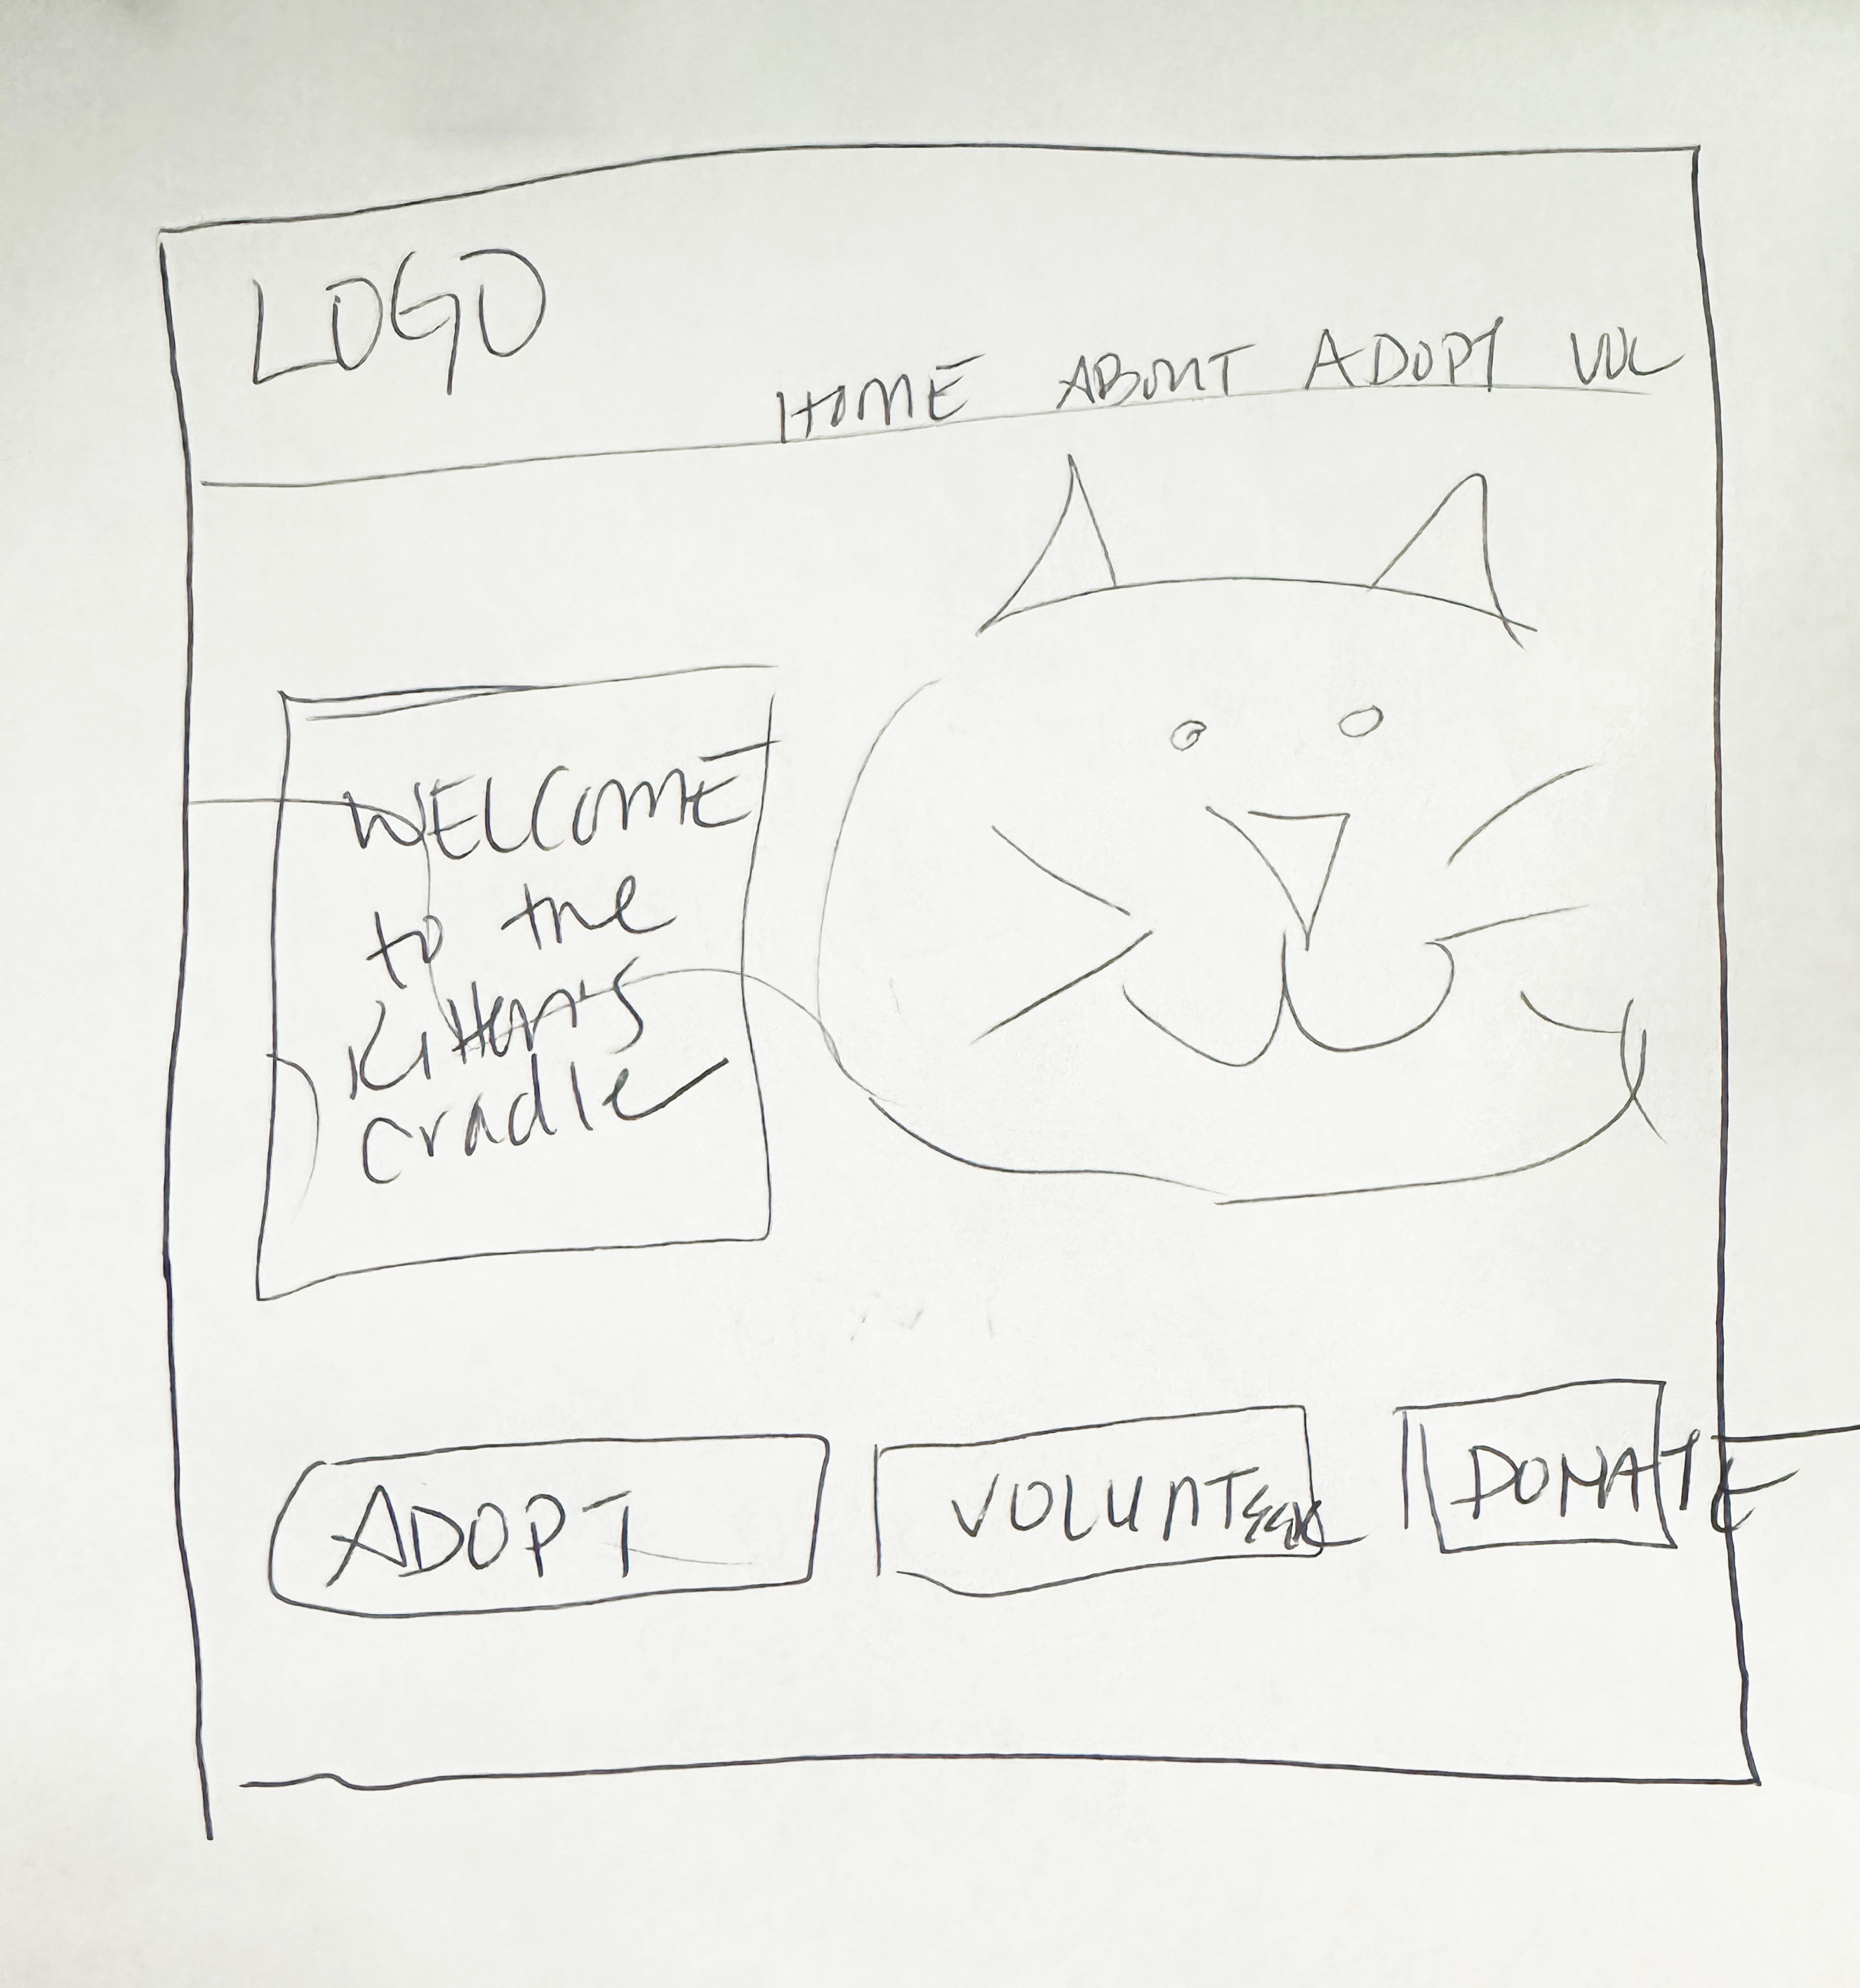 LOGO
HOME ABOUT ADOPT VOL
WELCOME
to the
Kitten's
cradle
ADOPT VOLUNTEER DONATE